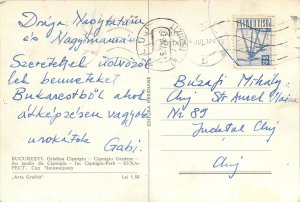 Drága Nagytatám
és Nagymamám
Szeretettel üdvözöl-
lek benneteket
Bukarestből ahol
átképzésen vagyok
unokátok Gabi.
BUCUREȘTI. Grădina Cișmigiu - Cişmigiu Gardens -
Au jardin du Cişmigiu - Im Cişmigiu-Park - БУХА-
РЕСТ. Сад Чишмиджиу
„Arta Grafică" Lei 1,50
EDITURA MERIDIANE
POSTA ROMINA
Buzafi Mihaly
Cluj St Aurel
Nr 89
Judetul Cluj
Cluj